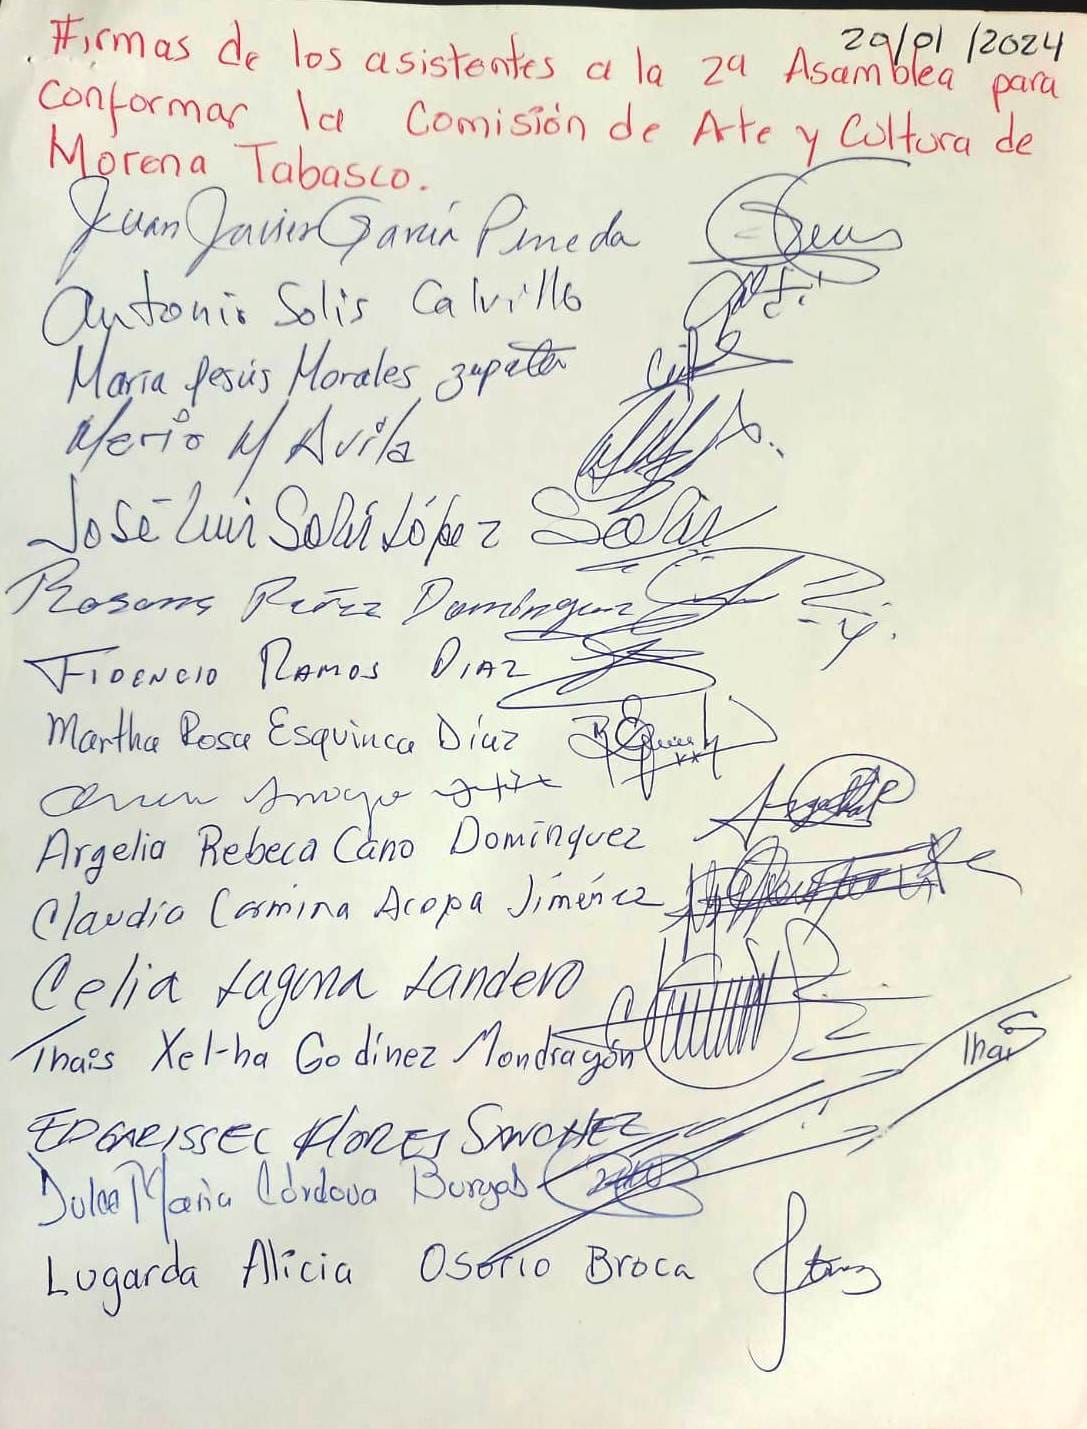 20/01/2024
Firmas de los asistentes a la 2ª Asamblea para
conformar la Comisión de Arte y Cultura de
Morena Tabasco.
Juan Javier García Pineda
Antonio Solis Calvillo
María Jesús Morales Zapata
M Avila
José Luis Solis López
Rosana Pérez Domínguez
FIDENCIO RAMOS DIAZ
Martha Rosa Esquinca Díaz
Arroyo
Argelia Rebeca Cano Domínguez
Claudia Carmina Acopa Jiménez
Celia Laguna Landero
Thais Xel-ha Godínez Mondragón
Thais
EDGARISSEC FLORES SANCHEZ
Dulce María Córdova Burgos
Lugarda Alicia Osorio Broca